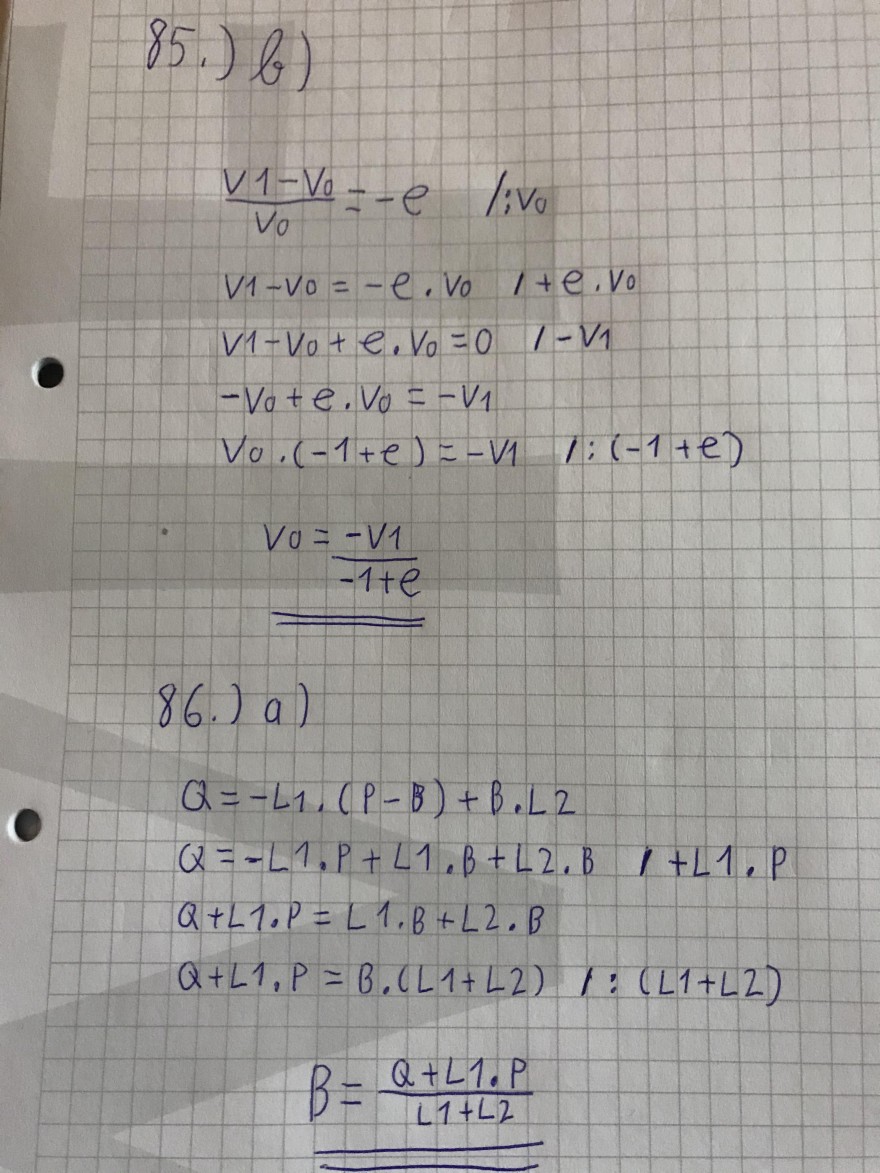 85.) b)
V1-V0/V0 = -e /:V0
V1-V0 = -e . V0 / +e . V0
V1-V0 + e . V0 = 0 / -V1
-V0 + e . V0 = -V1
V0 . (-1+e) = -V1 / : (-1+e)
V0 = -V1/-1+e
86.) a)
Q = -L1 . (P-B) + B . L2
Q = -L1 . P + L1 . B + L2 . B / +L1 . P
Q+L1 . P = L1 . B + L2 . B
Q+L1 . P = B . (L1+L2) / : (L1+L2)
B = Q+L1 . P/L1+L2